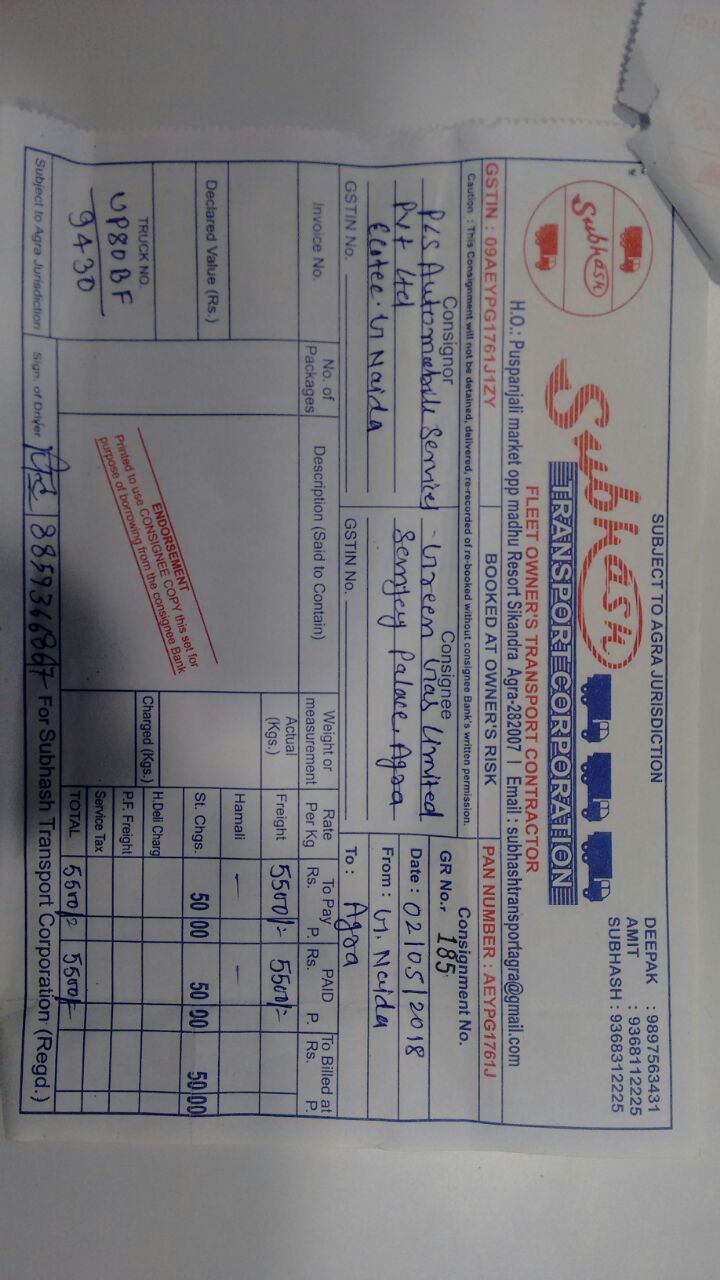 SUBJECT TO AGRA JURISDICTION
DEEPAK : 9897563431
AMIT : 9368112225
SUBHASH : 9368312225
Subhash
Subhash
TRANSPORT CORPORATION
FLEET OWNER'S TRANSPORT CONTRACTOR
H.O.: Puspanjali market opp madhu Resort Sikandra Agra-282007 | Email : subhashtransportagra@gmail.com
GSTIN : 09AEYPG1761J1ZY BOOKED AT OWNER'S RISK PAN NUMBER : AEYPG1761J
Caution : This Consignment will not be detained, delivered, re-recorded of re-booked without consignee Bank's written permission.
Consignor Consignee Consignment No.
PLS Automobile Services Green Gas Limited GR No.. 185
Pvt Ltd Sanjay Palace, Agra Date : 02/05/2018
Ecotec. G Noida From : G. Noida
GSTIN No. GSTIN No. To : Agra
Invoice No. No. of Packages Description (Said to Contain) Weight or measurement Rate Per Kg To Pay Rs. P. PAID Rs. P. To Billed at Rs. P.
Actual (Kgs.) Freight 5500/- 5500/-
Declared Value (Rs.) Hamali - -
St. Chgs. 50 00 50 00 50 00
Charged (Kgs.) H.Deli Charg
TRUCK NO. P.F. Freight
UP80BF Service Tax
9430 TOTAL 5500/- 5500/-
ENDORSEMENT
Printed to use CONSIGNEE COPY this set for
purpose of borrowing from the consignee Bank
Subject to Agra Jurisdiction Sign. of Driver 8859346867 For Subhash Transport Corporation (Regd.)